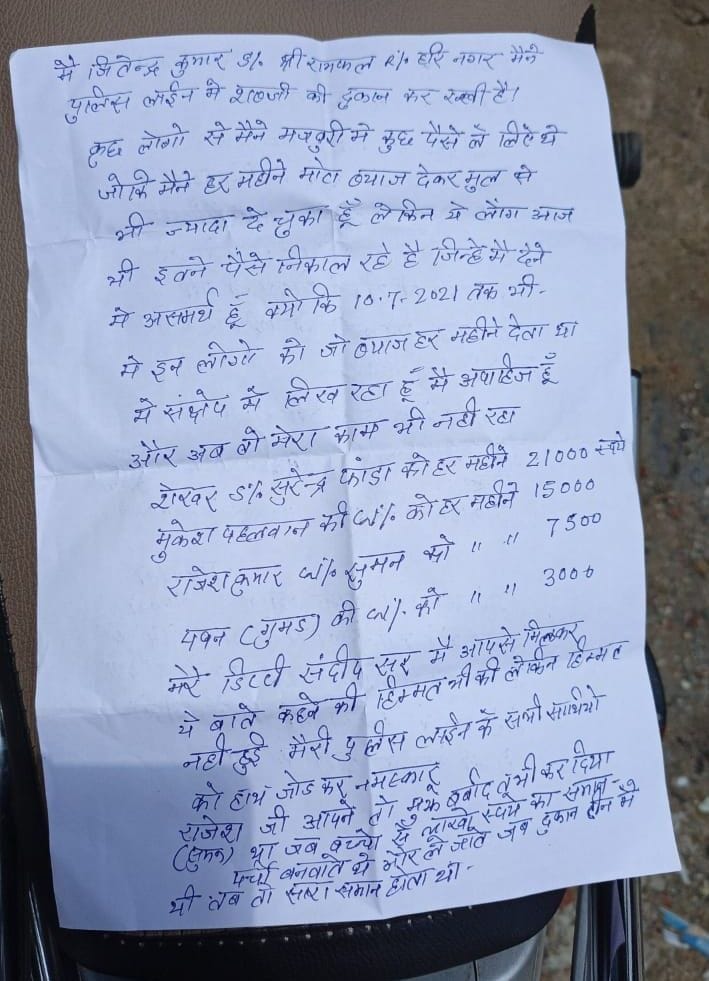 मै जितेन्द्र कुमार S/o श्री रामफल R/o हरि नगर मैने
पुलिस लाईन मे शब्जी की दुकान कर रखी है।
कुछ लोगो से मैने मजबुरी मे कुछ पैसे ले लिऐ थे
जोकि मैने हर महीने मोटा ब्याज देकर मुल से
भी ज्यादा दे चुका हूँ लेकिन ये लोग आज
भी इतने पैसे निकाल रहे है जिन्हे मै देने
मे असमर्थ हूँ क्योकि 10.7-2021 तक भी-
मे इन लोगो को जो ब्याज हर महीने देता था
मे संक्षेप मे लिख रहा हूँ मै अपाहिज हूँ
और अब तो मेरा काम भी नही रहा
शेखर S/o सुरेन्द्र फांडा को हर महीने 21000 रूपये
मुकेश पहलवान की W/o को हर महीने 15000
राजेश कुमार W/o सुमन को " " 7500
पवन (गुमड) की W/o को " " 3000
मेरे डिप्टी संदीप सर मै आपसे मिलकर
ये बाते कहने की हिम्मत भी की लेकिन हिम्मत
नही हुई मेरी पुलिस लाईन के सभी साथियो
को हाथ जोड कर नमस्कार
राजेश जी आपने तो मुझे बर्बाद तूभी कर दिया
(सुमन) था जब बच्चो से लाखो रूपये का समान-
पर्ची बनवाते थे और ले जाते जब दुकान होन मे
भी तब तो सारा समान होता था-